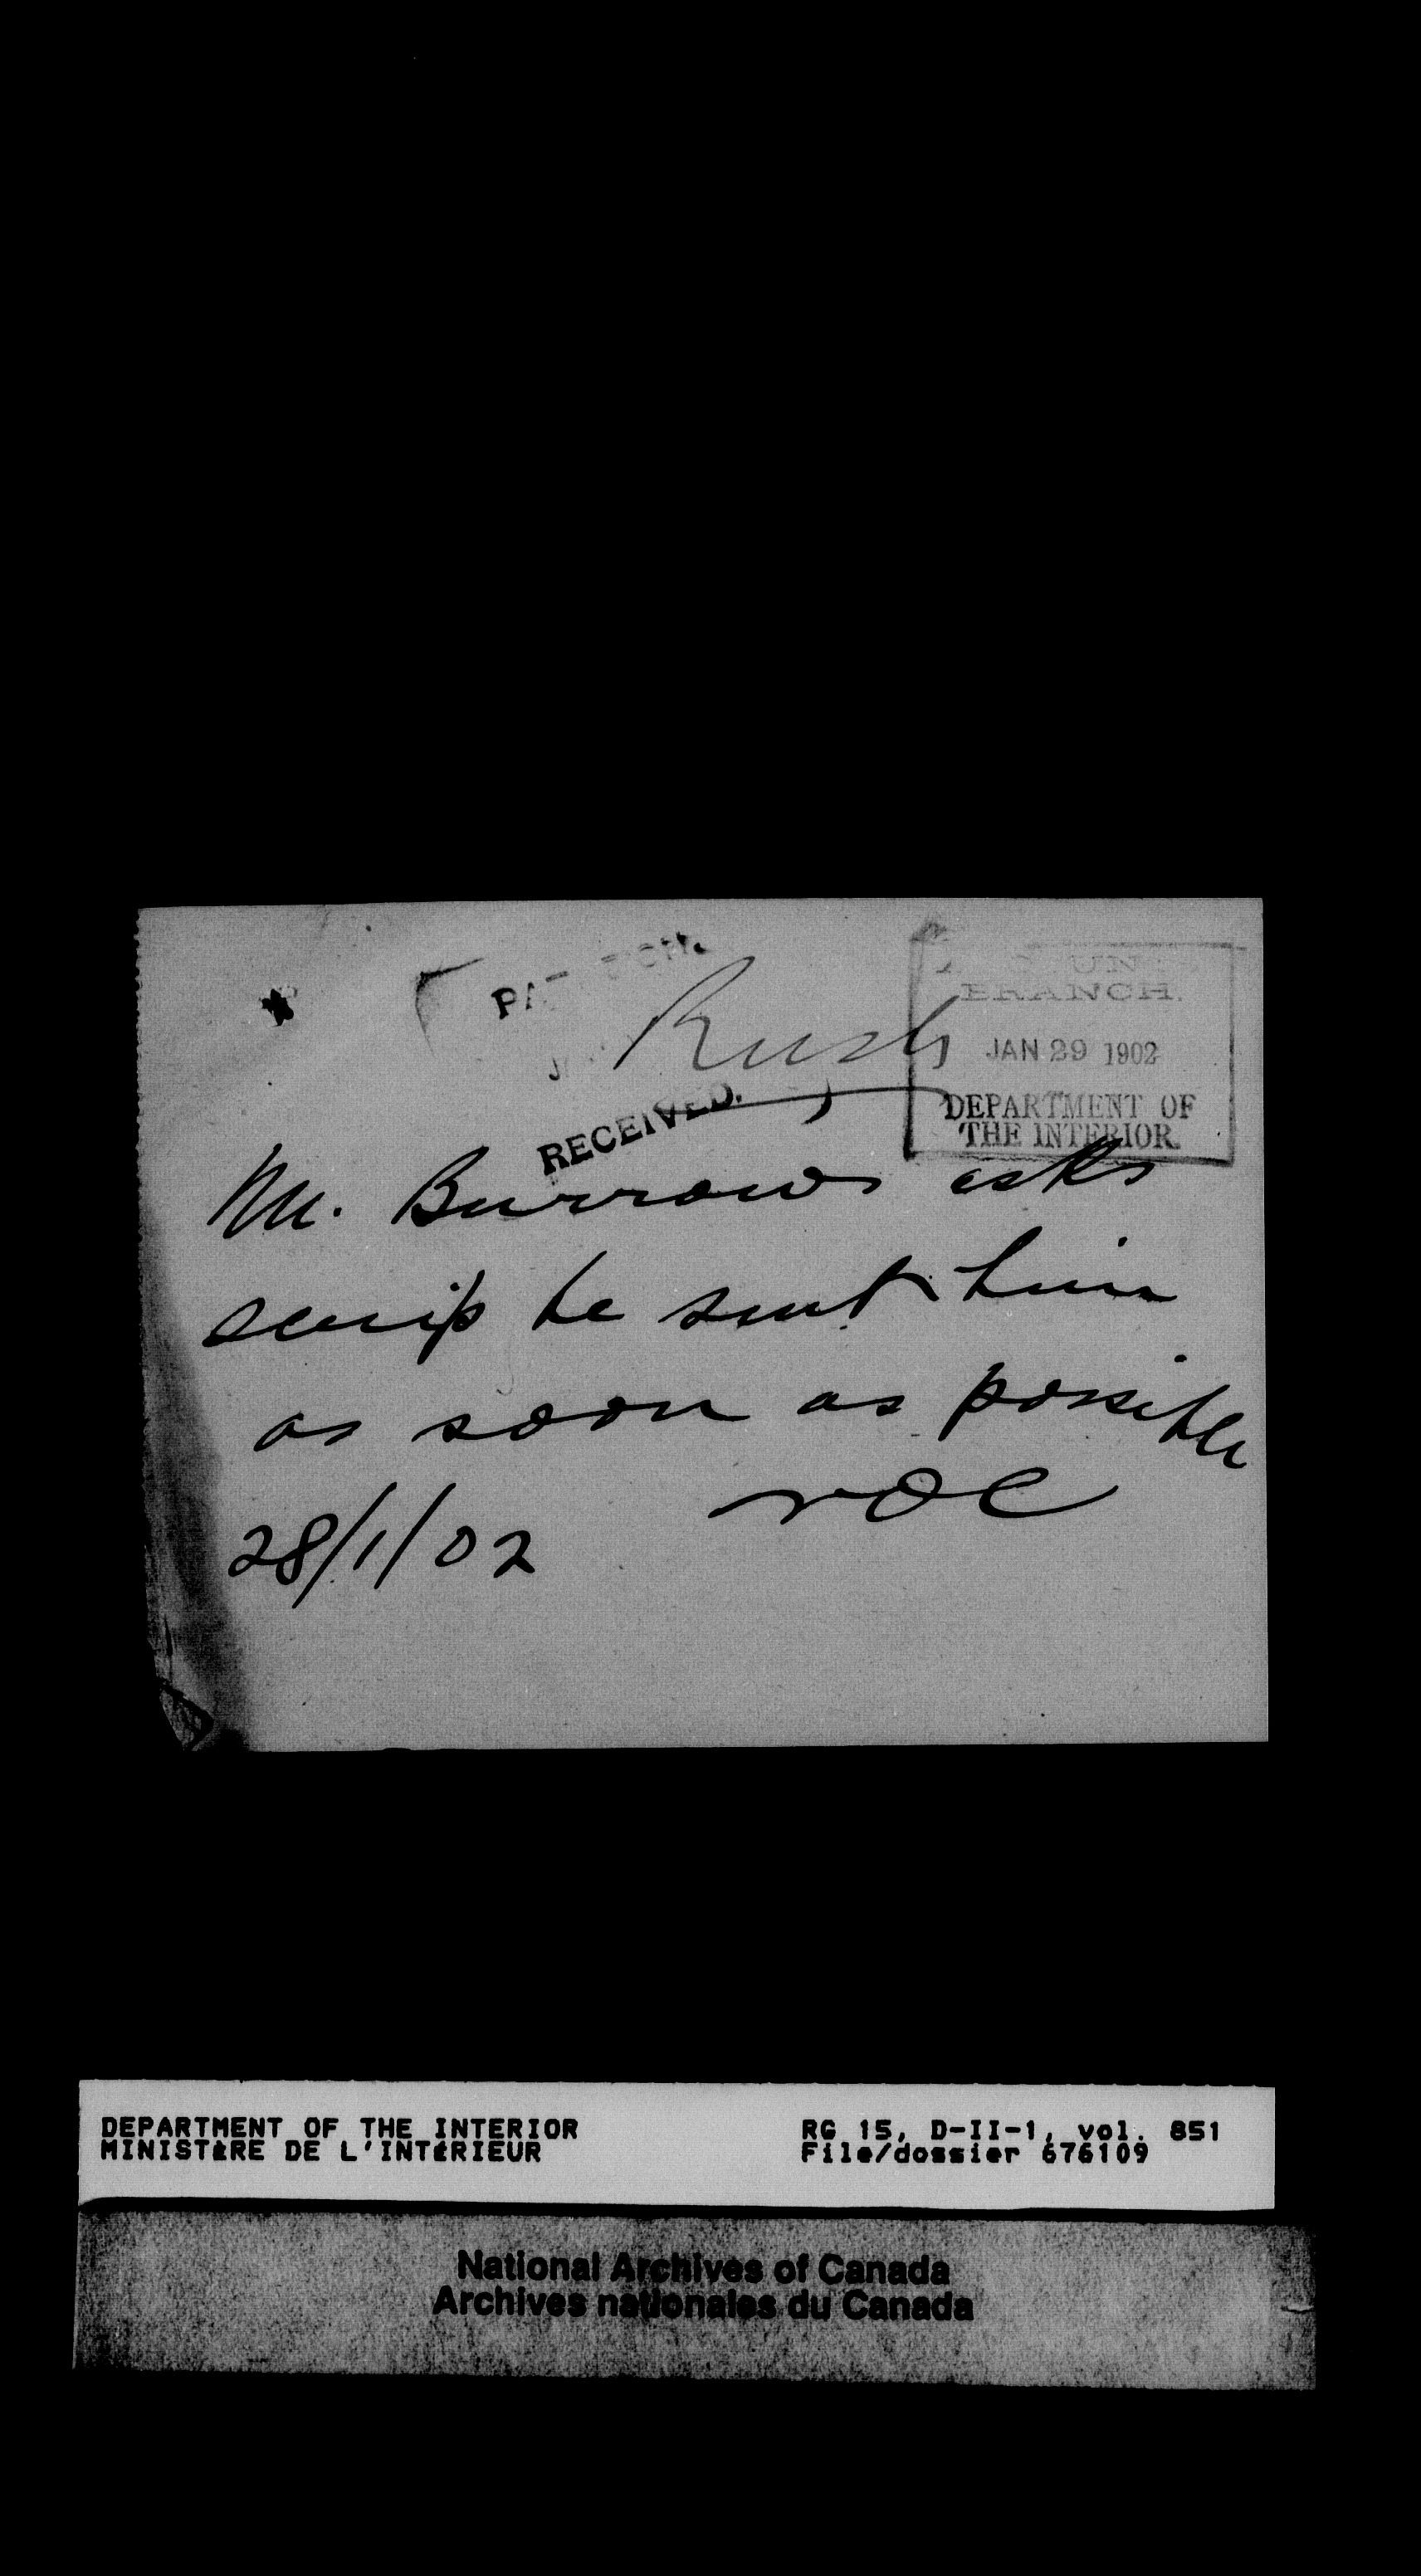 Rush
BRANCH.
JAN 29 1902
DEPARTMENT OF
THE INTERIOR.
RECEIVED.
Mr. Burrows asks
scrip be sent him
as soon as possible
28/1/02
DEPARTMENT OF THE INTERIOR
MINISTÈRE DE L'INTÉRIEUR
RG 15, D-II-1, vol. 851
File/dossier 676109
National Archives of Canada
Archives nationales du Canada